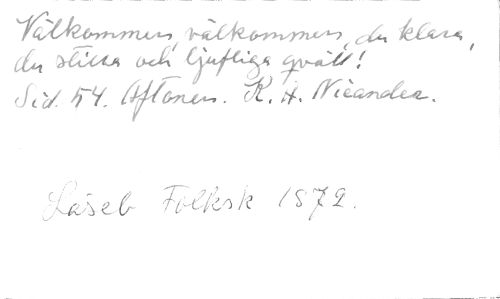 Välkommen, välkommen, du klara,
du stilla och ljufliga qväll!
Sid. 54. Aftonen. K. A. Nicander.
Läseb Folksk 1872.